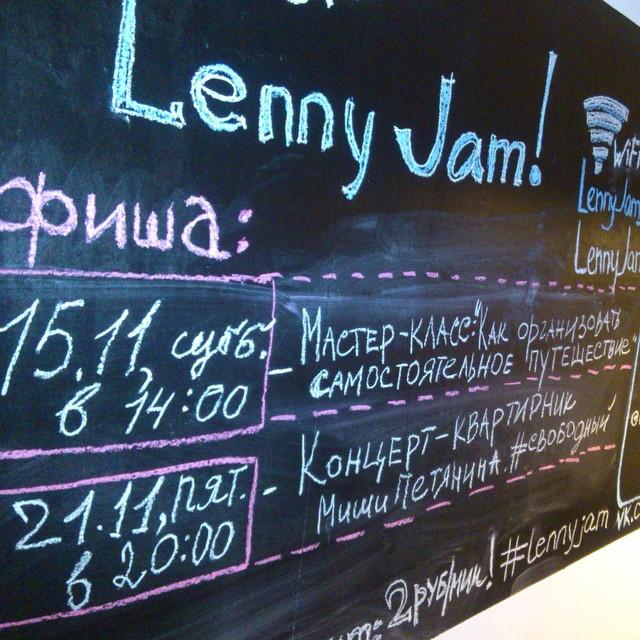 Lenny Jam!
WiFi
LennyJam
LennyJam
фиша:
15.11, субб.
в 14:00
- Мастер-класс: "Как организовать
самостоятельное путешествие"
21.11, пят.
в 20:00
- Концерт-квартирник
Миши Петянина. #свободный
2 руб/мин! #lennyjam vk.c